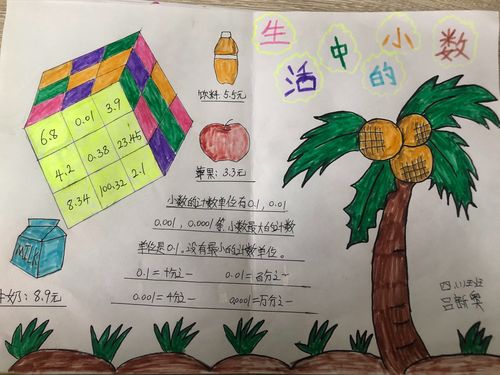 生活中的小数
6.8 0.01 3.9
4.2 0.38 23.45
8.34 100.32 2.1
饮料:5.5元
苹果:3.3元
MILK
牛奶:8.9元
小数的计数单位有0.1,0.01
0.001,0.0001等 小数最大的计数
单位是0.1.没有最小的计数单位。
0.1=十分之一 0.01=百分之一
0.001=千分之一 0.0001=万分之一